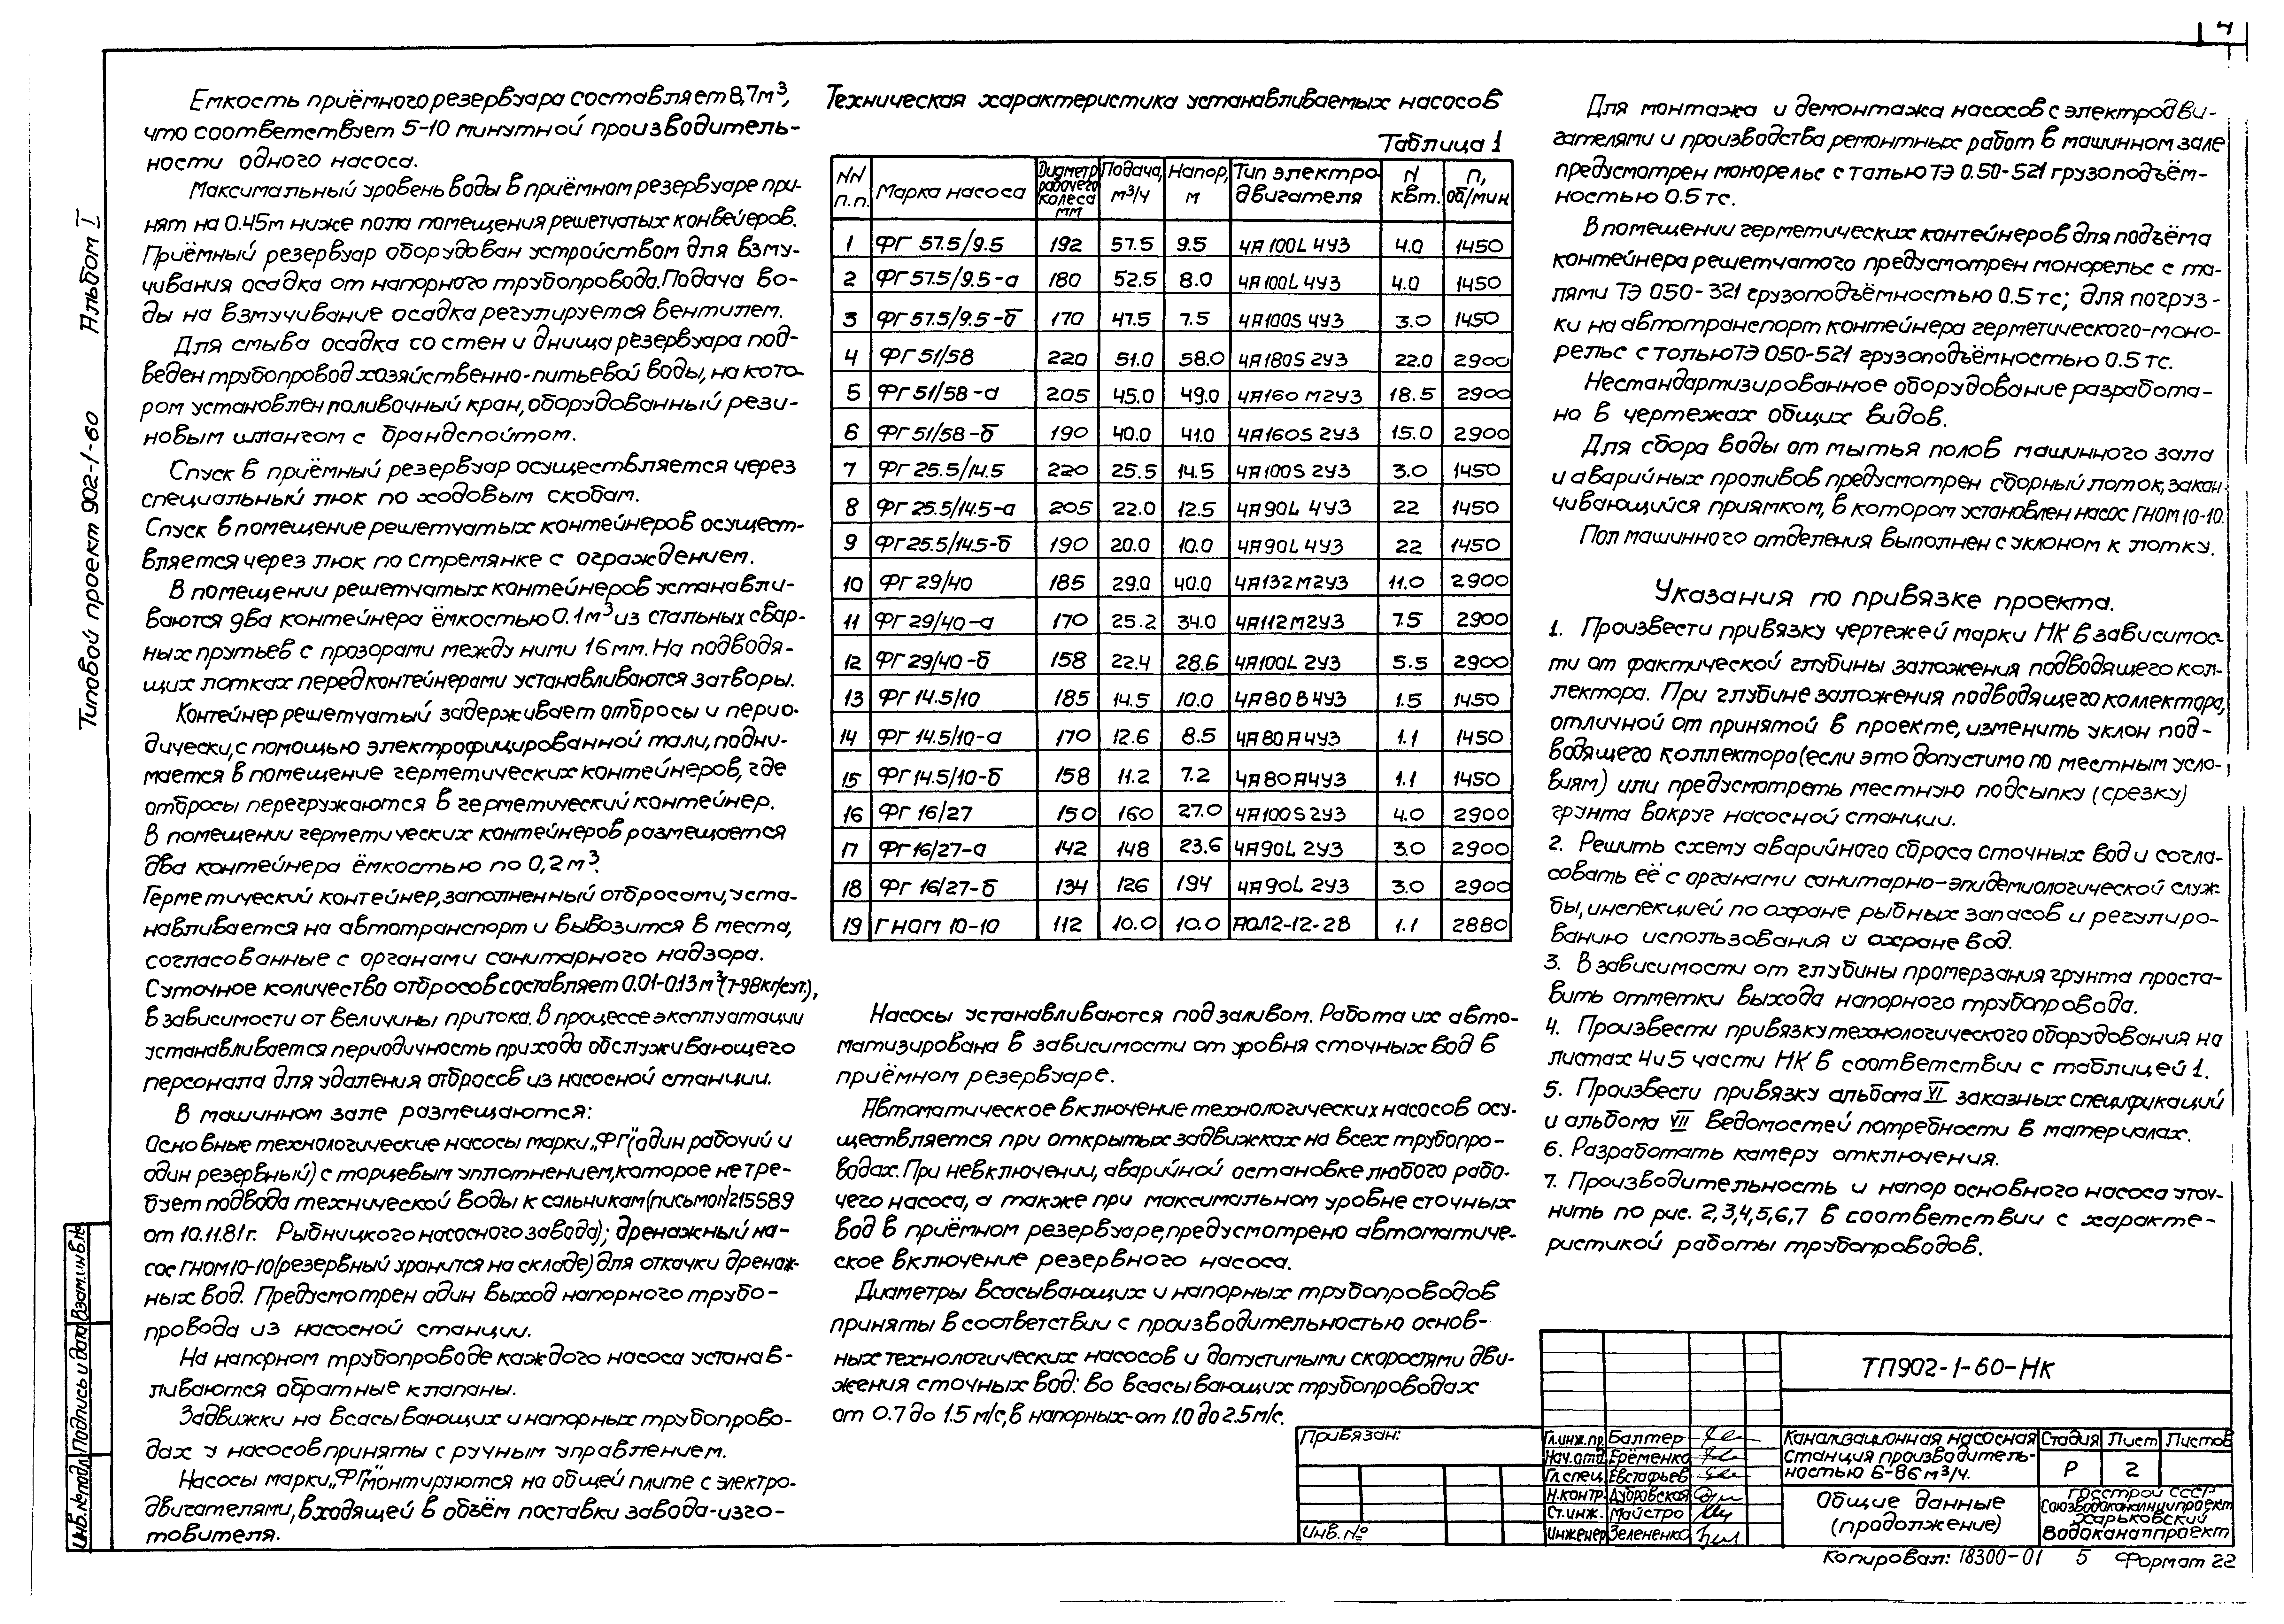 4
Альбом I
Типовой проект 902-1-60
Взам.инв.№
Подпись и дата
Инв.№подл.
Емкость приёмного резервуара составляет 8,7м³,
что соответствует 5-10 минутной производитель-
ности одного насоса.
Максимальный уровень воды в приёмном резервуаре при-
нят на 0.45м ниже пола помещения решетчатых конвейеров.
Приёмный резервуар оборудован устройством для взму-
чивания осадка от напорного трубопровода. Подача во-
ды на взмучивание осадка регулируется вентилем.
Для смыва осадка со стен и днища резервуара под-
веден трубопровод хозяйственно-питьевой воды, на кото-
ром установлен поливочный кран, оборудованный рези-
новым шлангом с брандспойтом.
Спуск в приёмный резервуар осуществляется через
специальный люк по ходовым скобам.
Спуск в помещение решетчатых контейнеров осущест-
вляется через люк по стремянке с ограждением.
В помещении решетчатых контейнеров устанавли-
ваются два контейнера ёмкостью 0.1м³ из стальных свар-
ных прутьев с прозорами между ними 16мм. На подводя-
щих лотках перед контейнерами устанавливаются затворы.
Контейнер решетчатый задерживает отбросы и перио-
дически, с помощью электрофицированной тали, подни-
мается в помещение герметических контейнеров, где
отбросы перегружаются в герметический контейнер.
В помещении герметических контейнеров размещается
два контейнера ёмкостью по 0,2м³.
Герметический контейнер, заполненный отбросами, уста-
навливается на автотранспорт и вывозится в места,
согласованные с органами санитарного надзора.
Суточное количество отбросов составляет 0.01-0.13м³(7-98кг/сут.),
в зависимости от величины притока. В процессе эксплуатации
устанавливается периодичность прихода обслуживающего
персонала для удаления отбросов из насосной станции.
В машинном зале размещаются:
Основные технологические насосы марки „ФГ" (один рабочий и
один резервный) с торцевым уплотнением, которое не тре-
бует подвода технической воды к сальникам (письмо N215589
от 10.11.81г. Рыбницкого насосного завода); дренажный на-
сос ГНОМ 10-10 (резервный хранится на складе) для откачки дренаж-
ных вод. Предусмотрен один выход напорного трубо-
провода из насосной станции.
На напорном трубопроводе каждого насоса устанав-
ливаются обратные клапаны.
Задвижки на всасывающих и напорных трубопрово-
дах у насосов приняты с ручным управлением.
Насосы марки „ФГ" монтируются на общей плите с электро-
двигателями, входящей в объём поставки завода-изго-
товителя.
Техническая характеристика устанавливаемых насосов
Таблица 1
NN п.п. Марка насоса Диаметр рабочего колеса мм Подача, м³/ч Напор, м Тип электро двигателя N квт. п, об/мин
1 ФГ 57.5/9.5 192 57.5 9.5 4А100L 4У3 4.0 1450
2 ФГ 57.5/9.5-а 180 52.5 8.0 4А100L 4У3 4.0 1450
3 ФГ 57.5/9.5-б 170 47.5 7.5 4А100S 4У3 3.0 1450
4 ФГ 51/58 220 51.0 58.0 4А180S 2У3 22.0 2900
5 ФГ 51/58-а 205 45.0 49.0 4А160 М2У3 18.5 2900
6 ФГ 51/58-б 190 40.0 41.0 4А160S 2У3 15.0 2900
7 ФГ 25.5/14.5 220 25.5 14.5 4А100S 2У3 3.0 1450
8 ФГ 25.5/14.5-а 205 22.0 12.5 4А90L 4У3 22 1450
9 ФГ 25.5/14.5-б 190 20.0 10.0 4А90L 4У3 22 1450
10 ФГ 29/40 185 29.0 40.0 4А132М2У3 11.0 2900
11 ФГ 29/40-а 170 25.2 34.0 4А112М2У3 7.5 2900
12 ФГ 29/40-б 158 22.4 28.6 4А100L 2У3 5.5 2900
13 ФГ 14.5/10 185 14.5 10.0 4А80В4У3 1.5 1450
14 ФГ 14.5/10-а 170 12.6 8.5 4А80А4У3 1.1 1450
15 ФГ 14.5/10-б 158 11.2 7.2 4А80А4У3 1.1 1450
16 ФГ 16/27 150 160 27.0 4А100S2У3 4.0 2900
17 ФГ 16/27-а 142 148 23.6 4А90L 2У3 3.0 2900
18 ФГ 16/27-б 134 126 194 4А90L 2У3 3.0 2900
19 ГНОМ 10-10 112 10.0 10.0 АОЛ2-12-2В 1.1 2880
Насосы устанавливаются под заливом. Работа их авто-
матизирована в зависимости от уровня сточных вод в
приёмном резервуаре.
Автоматическое включение технологических насосов осу-
ществляется при открытых задвижках на всех трубопро-
водах. При невключении, аварийной остановке любого рабо-
чего насоса, а также при максимальном уровне сточных
вод в приёмном резервуаре, предусмотрено автоматиче-
ское включение резервного насоса.
Диаметры всасывающих и напорных трубопроводов
приняты в соответствии с производительностью основ-
ных технологических насосов и допустимыми скоростями дви-
жения сточных вод: во всасывающих трубопроводах
от 0.7 до 1.5 м/с, в напорных-от 1.0 до 2.5м/с.
Для монтажа и демонтажа насосов с электродви-
гателями и производства ремонтных работ в машинном зале
предусмотрен монорельс с талью ТЭ 0.50-521 грузоподъём-
ностью 0.5 тс.
В помещении герметических контейнеров для подъёма
контейнера решетчатого предусмотрен монорельс с та-
лями ТЭ 050-321 грузоподъёмностью 0.5 тс; для погруз-
ки на автотранспорт контейнера герметического-моно-
рельс с толью ТЭ 050-521 грузоподъёмностью 0.5 тс.
Нестандартизированное оборудование разработа-
но в чертежах общих видов.
Для сбора воды от мытья полов машинного зала
и аварийных проливов предусмотрен сборный лоток, закан-
чивающийся приямком, в котором установлен насос ГНОМ 10-10.
Пол машинного отделения выполнен с уклоном к лотку.
Указания по привязке проекта.
1. Произвести привязку чертежей марки НК в зависимос-
ти от фактической глубины заложения подводящего кол-
лектора. При глубине заложения подводящего коллектора,
отличной от принятой в проекте, изменить уклон под-
водящего коллектора (если это допустимо по местным усло-
виям) или предусмотреть местную подсыпку (срезку)
грунта вокруг насосной станции.
2. Решить схему аварийного сброса сточных вод и согла-
совать её с органами санитарно-эпидемиологической служ-
бы, инспекцией по охране рыбных запасов и регулиро-
ванию использования и охране вод.
3. В зависимости от глубины промерзания грунта проста-
вить отметки выхода напорного трубопровода.
4. Произвести привязку технологического оборудования на
листах 4 и 5 части НК в соответствии с таблицей 1.
5. Произвести привязку альбома VI заказных спецификаций
и альбома VII Ведомостей потребности в материалах.
6. Разработать камеру отключения.
7. Производительность и напор основного насоса уточ-
нить по рис. 2,3,4,5,6,7 в соответствии с характе-
ристикой работы трубопроводов.
Привязан:
Инв.№
ТП902-1-60-НК
Гл.инж.пр. Балтер
Нач.отд. Ерёменко
Гл.спец. Евстафьев
Н.контр. Дубровская
Ст.инж. Майстро
Инженер Зелененко
Канализационная насосная
станция производитель-
ностью 6-86 м³/ч.
Стадия Лист Листов
Р 2
Общие данные
(продолжение)
Госстрой СССР
Союзводоканалниипроект
Харьковский
Водоканалпроект
Копировал: 18300-01 5 Формат 22